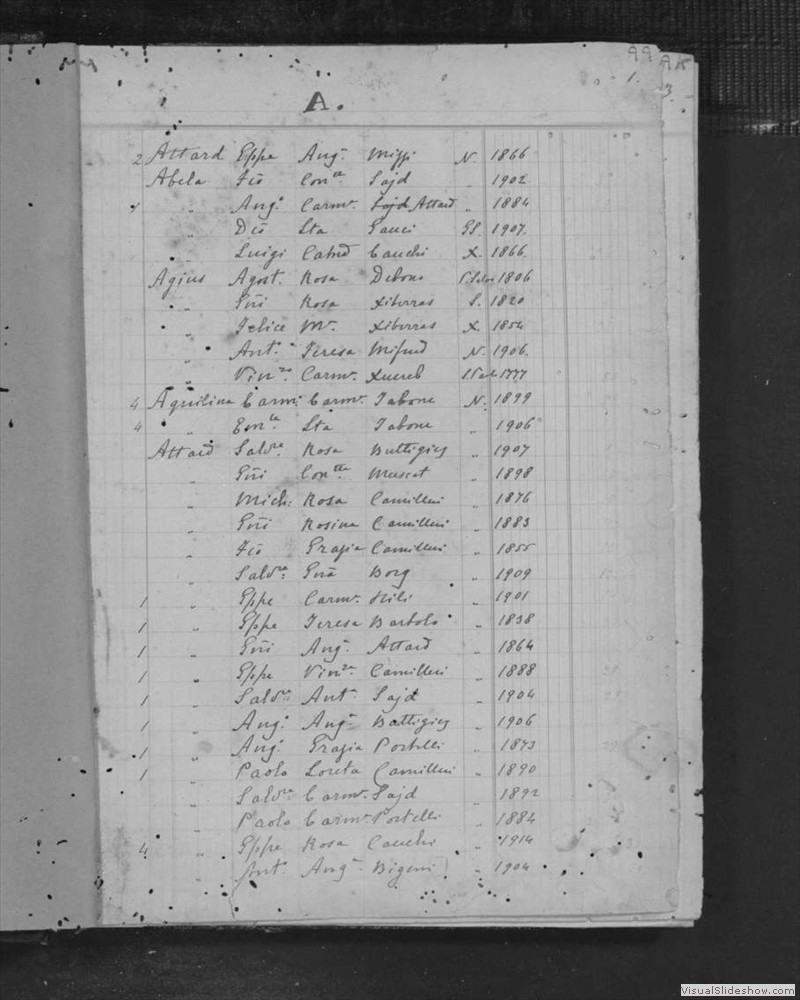 99
1.
3
A.
2 Attard Eppe Angª Mizzi N. 1866
Abela Fcõ Conta Sajd „ 1902
„ Angº Carmª Sajd Attard „ 1884
„ Dcõ Lta Gauci 1907.
„ Luigi Catnª Cauchi X. 1866.
Agius Agostº Rosa Debono 1806
„ Gnñi Rosa Xiberras S. 1820
„ Felice Mª Xiberras X. 1854
„ Antº Teresa Mifsud N. 1906.
„ Vinzº Carmª Xuereb 1777
4 Aquilina Carmº Carmª Tabone N. 1899
4 „ Emle Lta Tabone „ 1906
Attard Salvre Rosa Buttigieg „ 1907
„ Gnñi Contta Muscat „ 1898
„ Mich: Rosa Camilleri „ 1876
„ Gnñi Rosina Camilleri „ 1883
„ Fcõ Grazia Camilleri „ 1855
„ Salvre Gnña Borg „ 1909
1 „ Eppe Carmª Hili „ 1901
1 „ Eppe Teresa Bartolo „ 1838
1 „ Gnñi Angª Attard „ 1864
1 „ Eppe Vinza Camilleri „ 1888
1 „ Salvre Antª Sajd „ 1904
1 „ Angº Angª Buttigieg „ 1906
1 „ Angº Grazia Portelli „ 1873
1 „ Paolo Loreta Camilleri „ 1890
„ Salvre Carmª Sajd „ 1892
„ Paolo Carmª Portelli „ 1884
4 „ Eppe Rosa Cauchi „ 1914
„ Antº Angª Bigeni „ 1904
VisualSlideshow.com